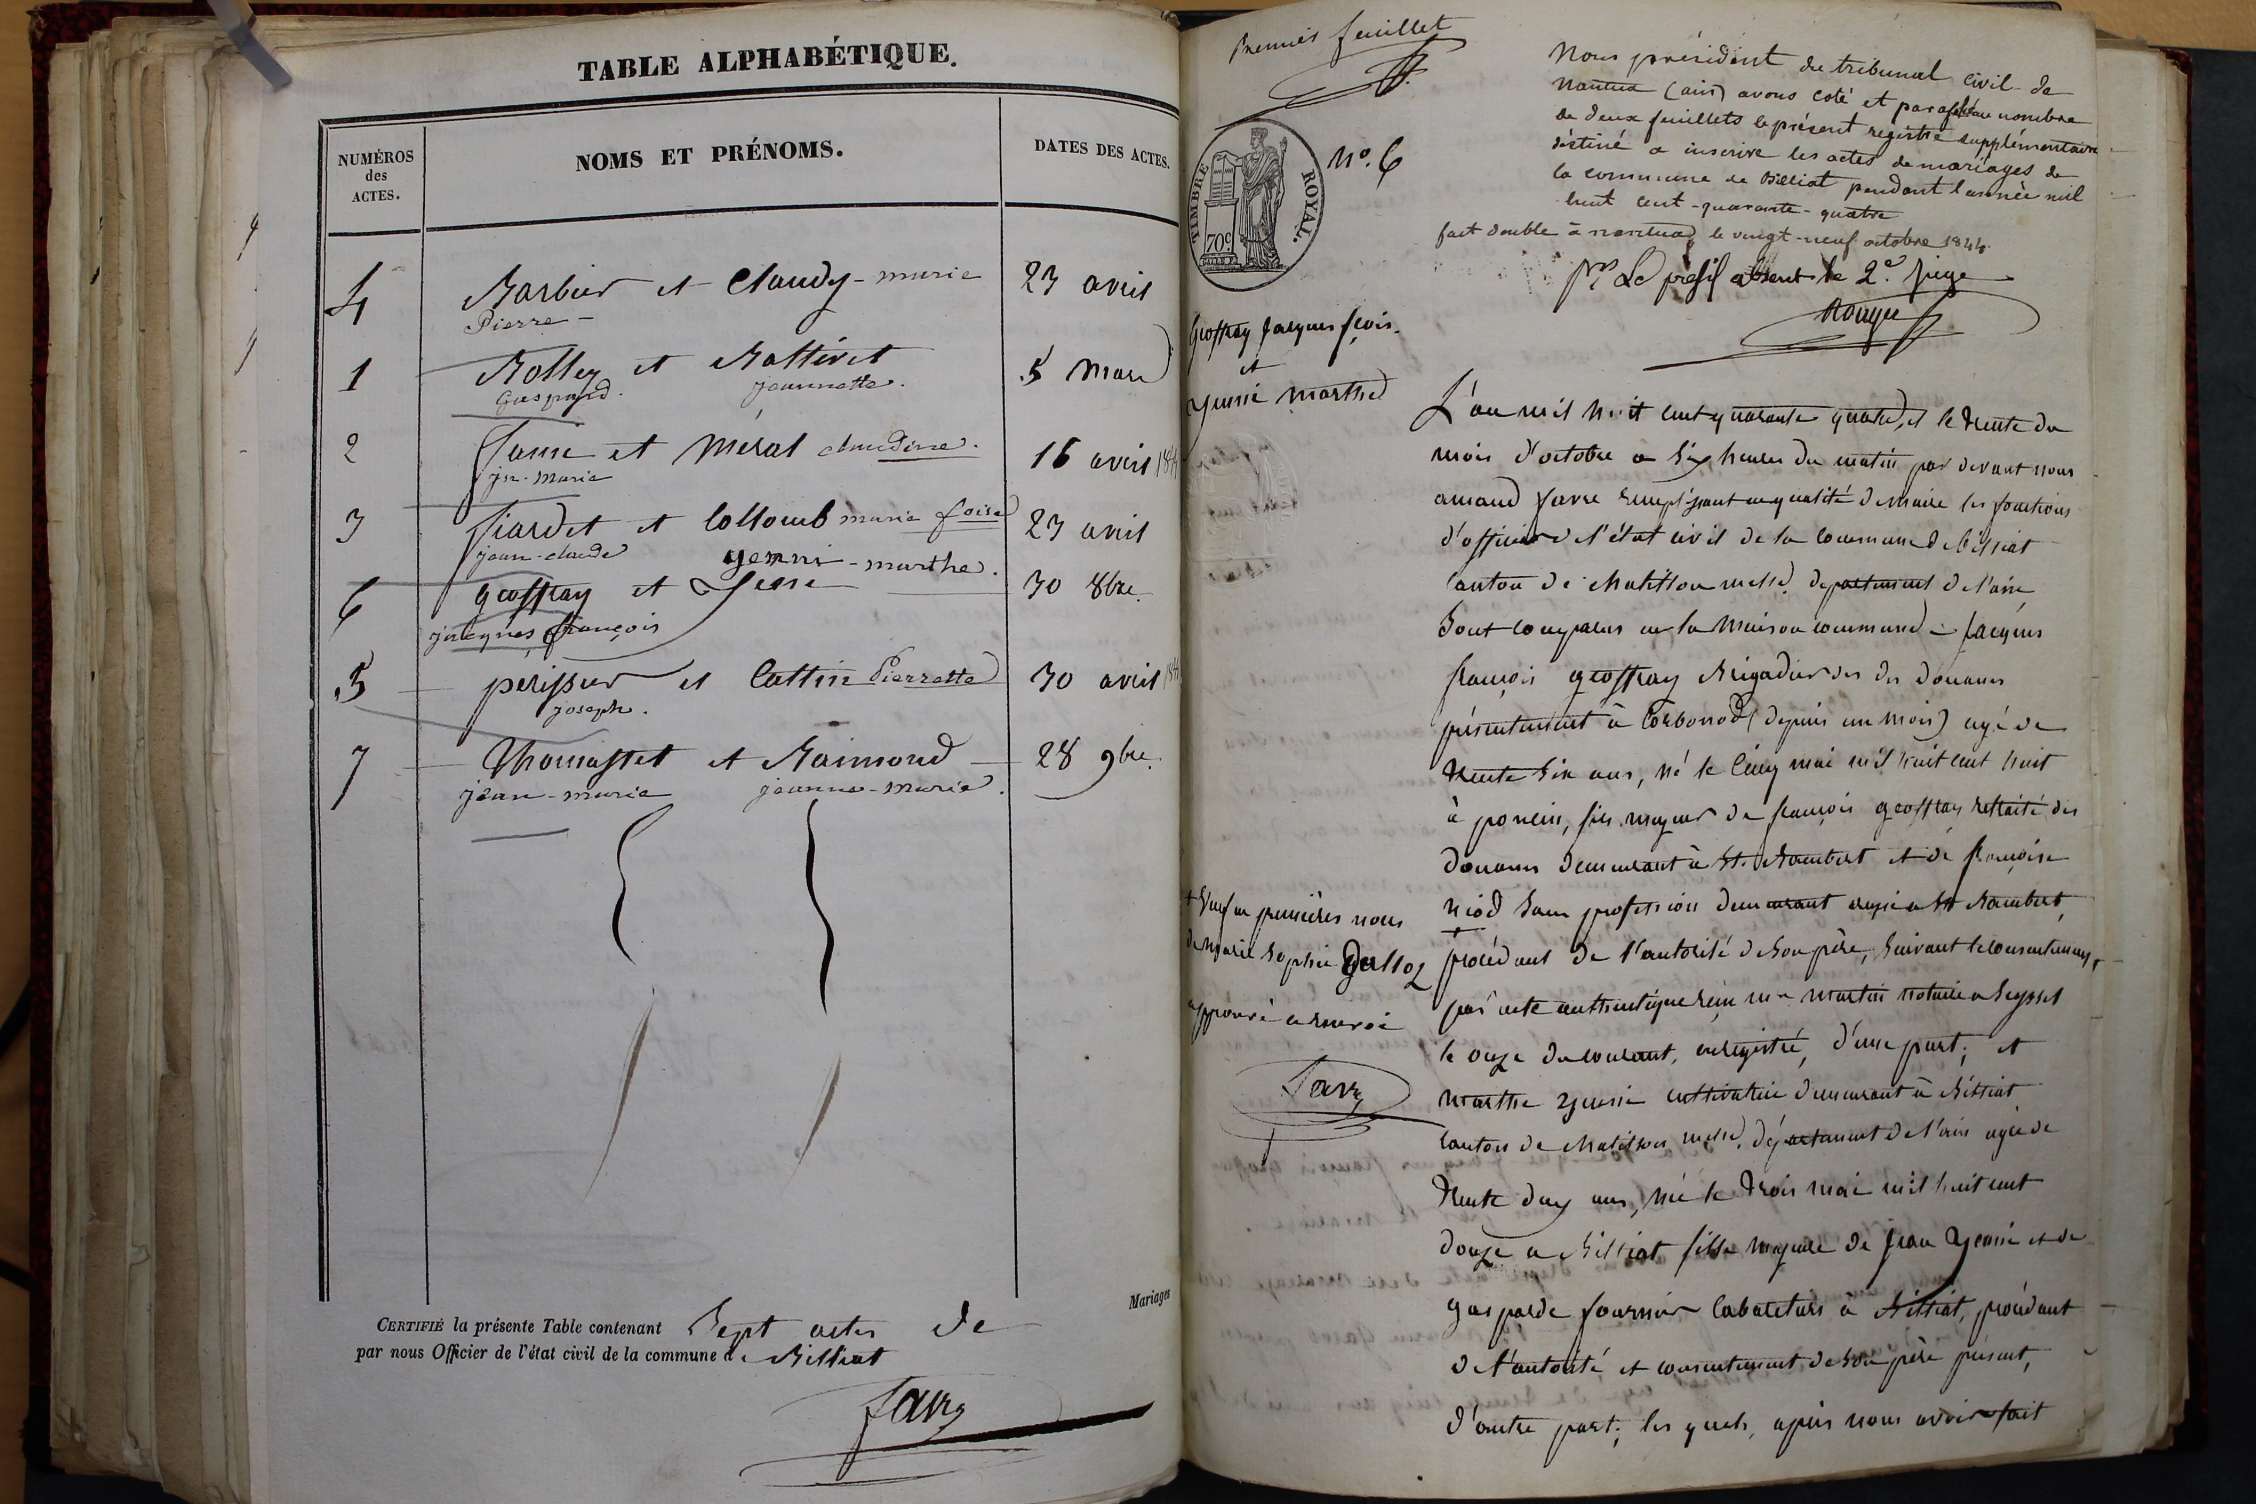 TABLE ALPHABÉTIQUE.
NUMÉROS
des
ACTES.
NOMS ET PRÉNOMS.
DATES DES ACTES.
4 Barbier et Claudy-marie 23 avril
Pierre
1 Bolley et Ballivet 5 Mars
Gaspard. jeannette.
2 et Méral claudine. 16 avril
jn-Marie
3 fiardet et Collomb marie foise 23 avril
jean-claude
yenni-marthe.
6 geoffray et 30 8bre.
jacques françois
5 périssier et Cattin Pierrette 30 avril
joseph.
7 Thomasset et Raimond 28 9bre.
jean-marie jeanne-marie.
Mariages
CERTIFIÉ la présente Table contenant Sept actes de
par nous Officier de l'état civil de la commune de Billiat
favre
Premier feuillet
TIMBRE ROYAL.
70c.
No. 6
Nous président du tribunal civil de
nantua (ain) avons coté et paraphé au nombre
de deux feuillets le présent registre supplémentaire
destiné a inscrire les actes de mariages de
la commune de Billiat pendant l'année mil
huit cent-quarante-quatre
fait double à nantua, le vingt-neuf octobre 1844.
pr Le présid absent le 2e. juge
Rouyer
Geoffray Jacques fçois.
et
yenni marthe
L'an mil huit cent quarante quatre, et le trente du
mois d'octobre a six heures du matin par devant nous
amand favre remplissant en qualité de Maire les fonctions
d'officier de l'état civil de la commune de billiat
Canton de Chatillon departement de l'ain,
Sont comparus en la Maison commune = Jacques
françois geoffray Brigadier des des Douanes
présentement à Corbonod (depuis un mois) agé de
trente six ans, né le Cinq mai mil huit cent huit
à poncin, fils majeur de françois geoffray retraité des
Douanes demeurant à St. Rambert et de françoise
niod Sans profession demeurant aussi a St Rambert,
+ Veuf en premières noces
de Marie Sophie Dalloz
approuvé le renvoi
Favre
procédant de l'autorité de Son père, Suivant le consentement,
par acte authentique reçu me martin notaire a Seyssel
le onze du courant, enregistré, d'une part; et
Marthe yenni cultivatrice demeurant à Billiat
Canton de Chatillon département de l'ain agée de
trente deux ans, née le trois mai mil huit cent
douze a Billiat fille majeure de Jean yenni et de
gasparde fournier Cabaretiers à Billiat, procédant
de l'autorité et consentement de son père présent,
d'autre part; les quels, après nous avoir fait